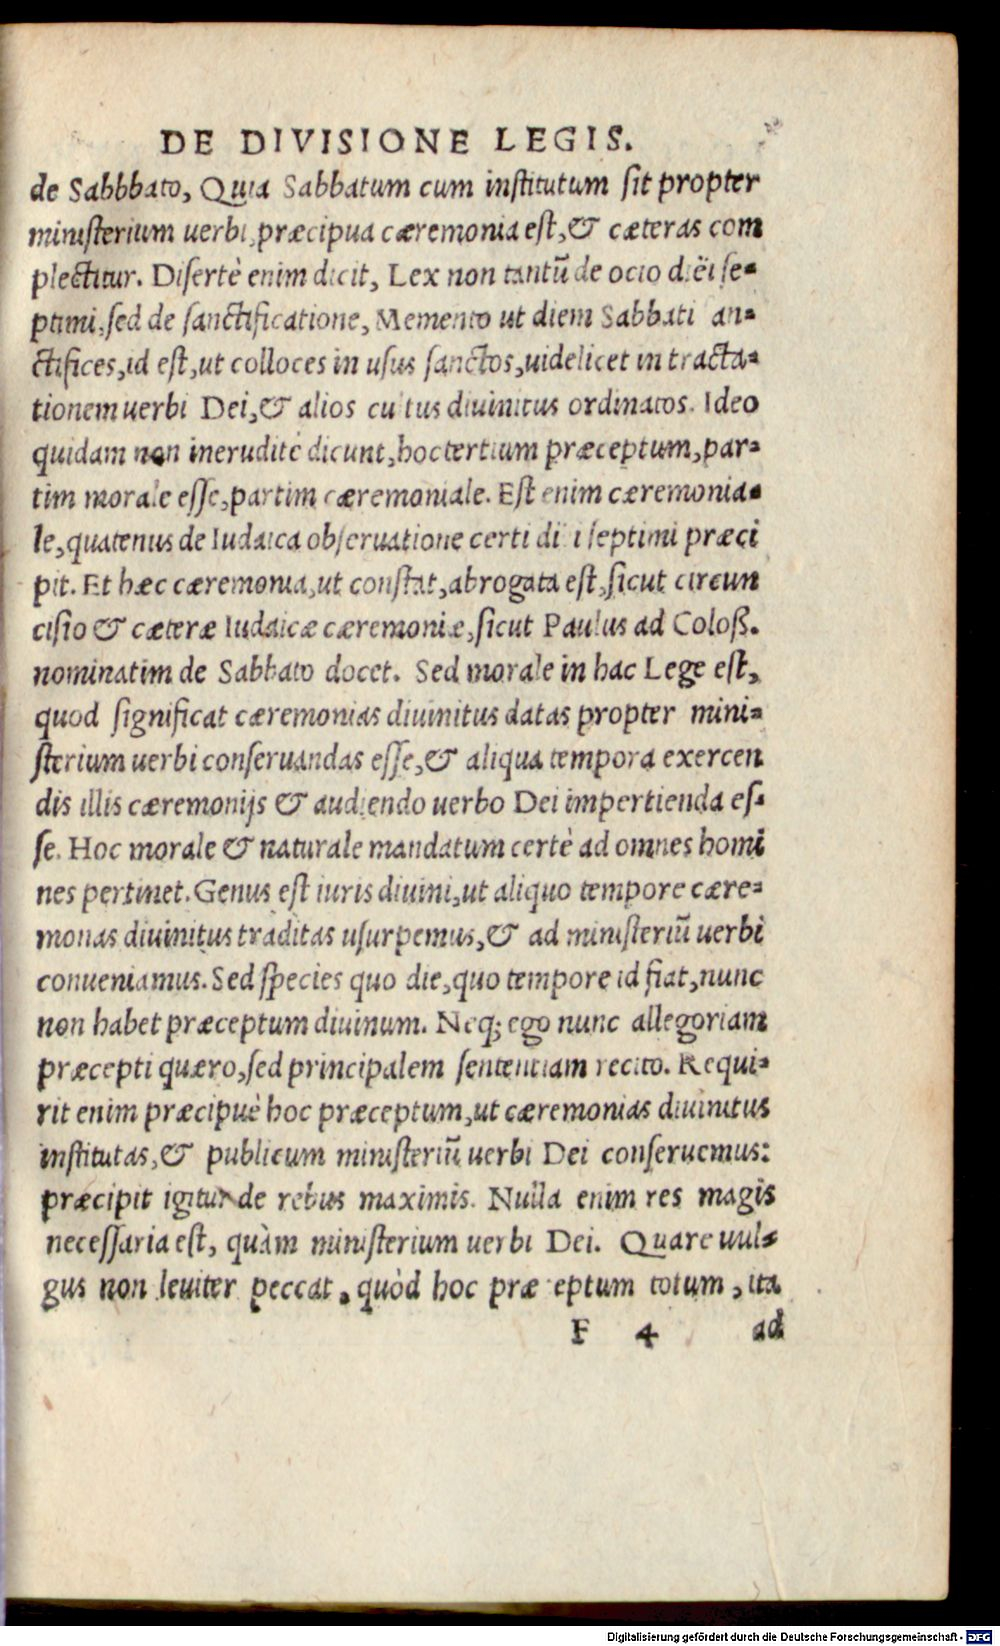 DE DIVISIONE LEGIS.
de Sabbbato, Quia Sabbatum cum institutum sit propter
ministerium uerbi, præcipua cæremonia est, & cæteras com
plectitur. Disertè enim dicit, Lex non tantũ de ocio diëi se-
ptimi, sed de sanctificatione, Memento ut diem Sabbati an-
ctifices, id est, ut colloces in usus sanctos, uidelicet in tracta-
tionem uerbi Dei, & alios cultus diuinitus ordinatos. Ideo
quidam non ineruditè dicunt, hoc tertium præceptum, par-
tim morale esse, partim cæremoniale. Est enim cæremonia-
le, quatenus de Iudaica obseruatione certi di i septimi præci
pit. Et hæc cæremonia, ut constat, abrogata est, sicut circun
cisio & cæteræ Iudaicæ cæremoniæ, sicut Paulus ad Coloß.
nominatim de Sabbato docet. Sed morale in hac Lege est,
quod significat cæremonias diuinitus datas propter mini-
sterium uerbi conseruandas esse, & aliqua tempora exercen
dis illis cæremonijs & audiendo uerbo Dei impertienda es-
se. Hoc morale & naturale mandatum certè ad omnes homi
nes pertinet. Genus est iuris diuini, ut aliquo tempore cære-
monas diuinitus traditas usurpemus, & ad ministeriũ uerbi
conueniamus. Sed species quo die, quo tempore id fiat, nunc
non habet præceptum diuinum. Neq; ego nunc allegoriam
præcepti quæro, sed principalem sententiam recito. Requi-
rit enim præcipuè hoc præceptum, ut cæremonias diuinitus
institutas, & publicum ministeriũ uerbi Dei conseruemus:
præcipit igitur de rebus maximis. Nulla enim res magis
necessaria est, quàm ministerium uerbi Dei. Quare uul-
gus non leuiter peccat, quòd hoc præ eptum totum, ita
F 4 ad
Digitalisierung gefördert durch die Deutsche Forschungsgemeinschaft - DFG